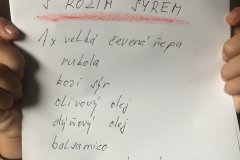 S KOZÍM SÝREM
1 x velká červená řepa
rukola
kozí sýr
olivový olej
dýňový olej
balsamico